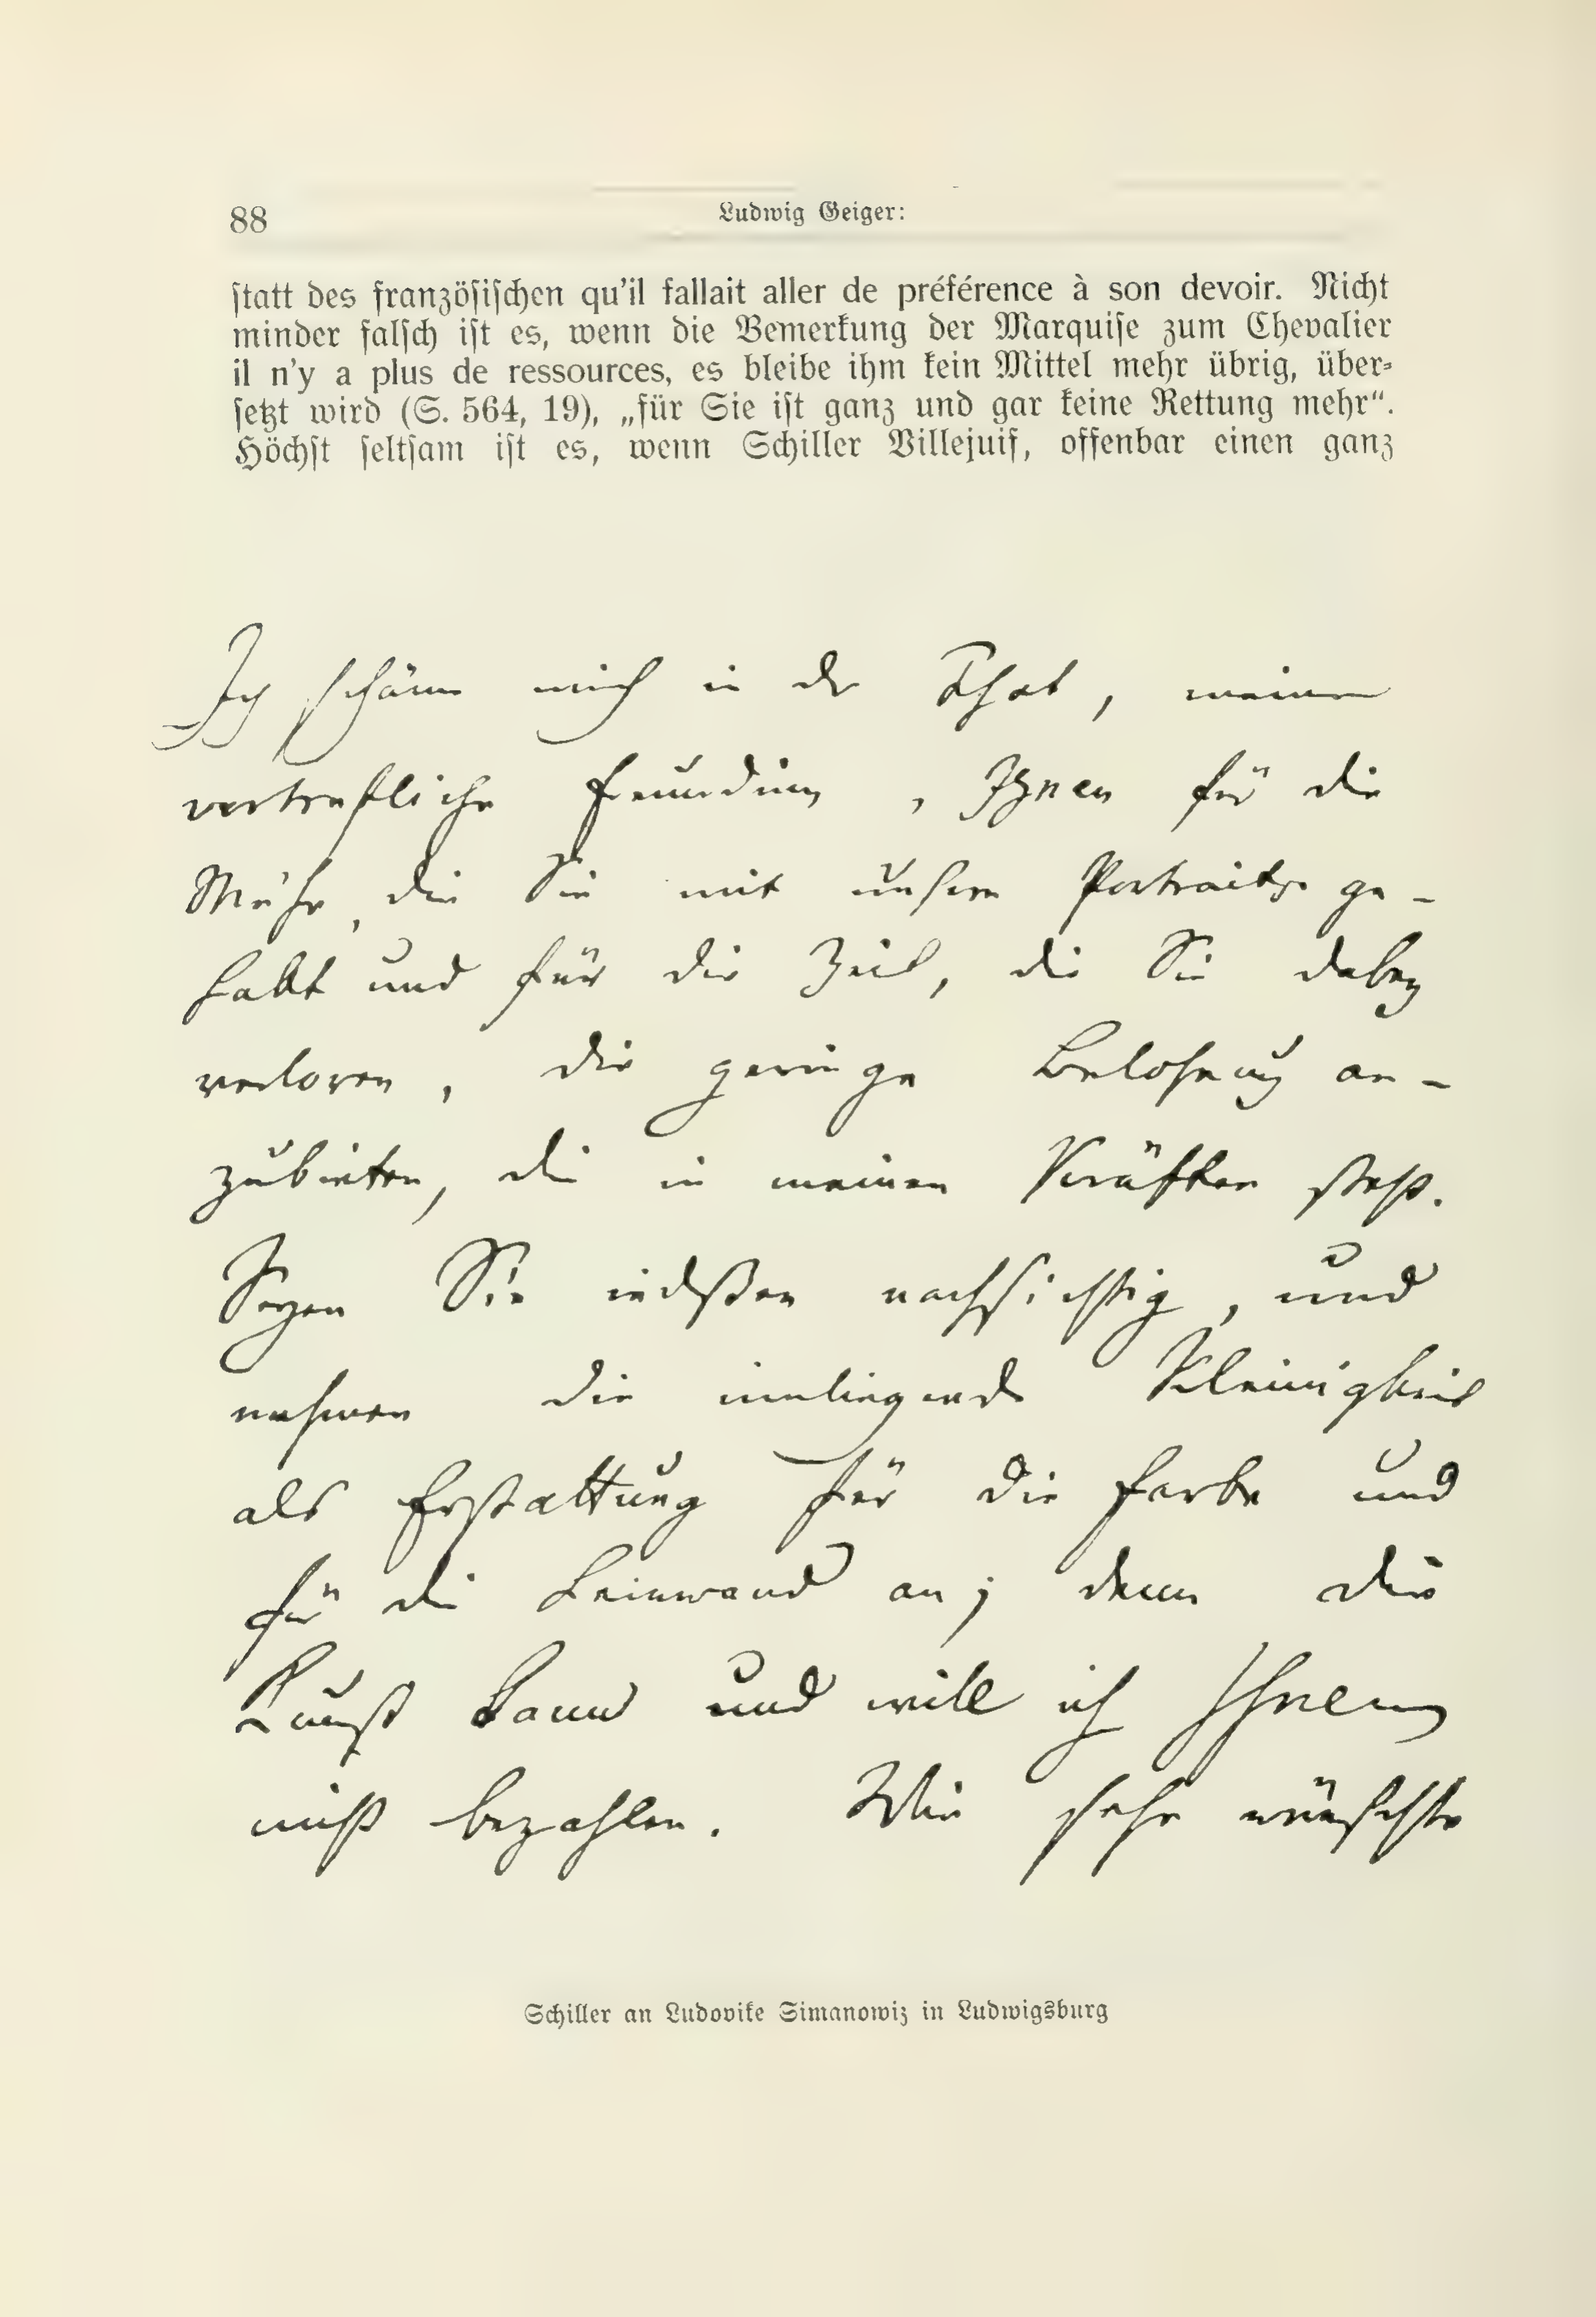 88
Ludwig Geiger:
ſtatt des franzöſiſchen qu'il fallait aller de préférence à son devoir. Nicht
minder falſch iſt es, wenn die Bemerkung der Marquiſe zum Chevalier
il n'y a plus de ressources, es bleibe ihm kein Mittel mehr übrig, über⸗
ſetzt wird (S. 564, 19), „für Sie iſt ganz und gar keine Rettung mehr“.
Höchſt ſeltſam iſt es, wenn Schiller Villejuif, offenbar einen ganz
Ich schäme mich in der That, meine
vortrefliche Freundinn, Ihnen für die
Mühe, die Sie mit unsern Portraits ge-
habt und für die Zeit, die Sie dabey
verloren, die geringe Belohnung an-
zubieten, die in meinen Kräften steht.
Seyen Sie indeßen nachsichtig, und
nehmen die innliegende Kleinigkeit
als Erstattung für die Farbe und
für die Leinwand an; denn die
Kunst kann und will ich Ihnen
nicht bezahlen. Wie sehr wünschte
Schiller an Ludovike Simanowiz in Ludwigsburg